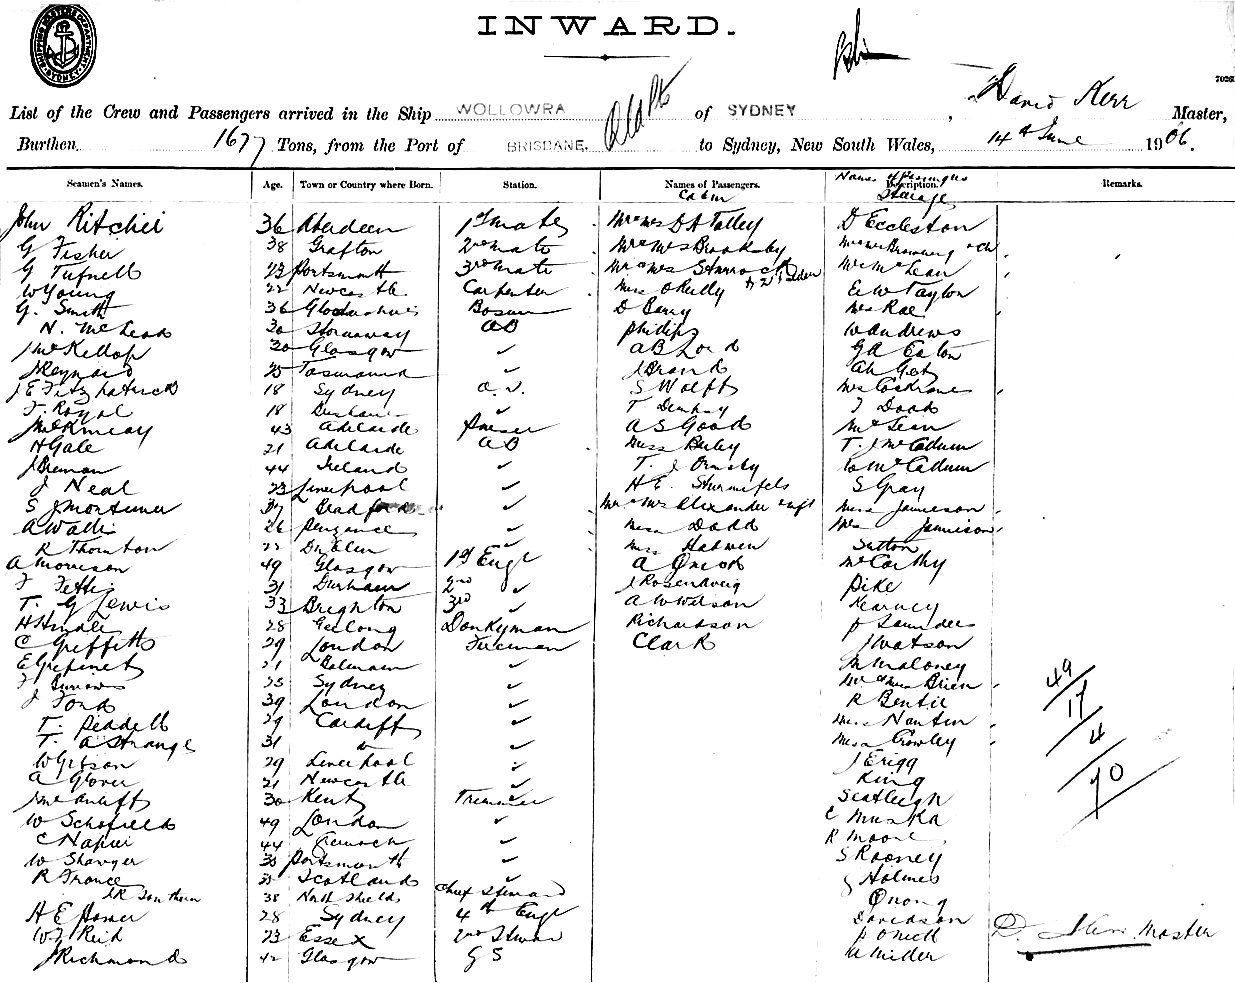 INWARD.
SHIPPING MASTERS DEPARTMENT SYDNEY
List of the Crew and Passengers arrived in the Ship WOLLOWRA of SYDNEY, David Kerr Master,
Burthen 1677 Tons, from the Port of BRISBANE. to Sydney, New South Wales, 14th June 1906.
Seamen's Names. Age. Town or Country where Born. Station. Names of Passengers. Description. Remarks.
Cabin Names of Passengers Steerage
John Ritchie 36 Aberdeen 1st Mate Mr & Mrs D A Talley D Eccleston
G Fisher 38 Grafton 2nd Mate Mr & Mrs Brooksby
G Tufnell 23 Portsmouth 3rd Mate Mr & Mrs Sturrock Mr McLean
W Young 22 Newcastle Carpenter Miss O'Reilly E W Taylor
G. Smith 36 Bosun D Barry Mrs Rae
N. McLeod 30 Stornaway AB Phillips W Andrews
J McKellop 30 Glasgow A B Lord G A Eaton
J Reynard 25 Tasmania J Brand Ah Get
J E Fitzpatrick 18 Sydney O.S. S Wolff Mrs Cochrane
F. Royal 18 Brisbane T
43 Adelaide A S Good McLean
H Gale 21 Adelaide AB Miss T. J McAdam
J Brennan 44 Ireland T. J Ormsby W McAdam
J Neal 23 Liverpool H E. Sturmfels S Gray
S J Mortimer 37 Bradford Mr & Mrs Alexander & inft Miss Jamieson
A Wallis 26 Penzance Miss Dodd Mrs Jamieson
R Thornton 22 Miss Hadwen Sutton
A Morrison 49 Glasgow 1st Engr A McCarthy
F Pettis 31 Durham 2nd J Rosenzweig Pike
T. G Lewis 33 Brighton 3rd A W Wilson Kearney
H Hindle 28 Geelong Donkyman Richardson P Saunders
C Griffiths 29 London Fireman Clark J Watson
21 Balmain M Maloney
F Burrows 25 Sydney Mr & Mrs Brien
J Ford 39 London R Bentie
T. Peddell 29 Cardiff Miss
T. A Strange 31 Miss Crowley
W Gibson 29 Liverpool J
A Glover 21 Newcastle King
30 Kent Trimmer
W Schofield 49 London C
C Napier 44 R Moore
W 30 Portsmouth S Rooney
R France 35 Scotland Holmes
38 North Shields Chief Steward Quong
H E Homer 28 Sydney 4th Engr Davidson
W J Reid 23 Essex 2nd Stewd P O'Neill
J Richmond 42 Glasgow G S
49
17
4
70
D. Kerr Master